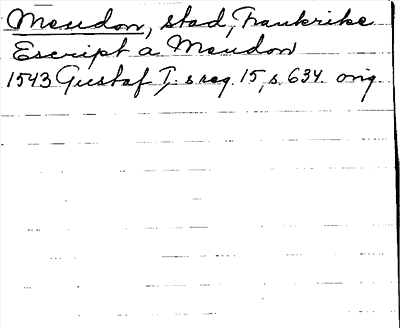 Meudon, stad, Frankrike
Escript a Meudon
1543 Gustaf I:s reg. 15, s. 634. orig.